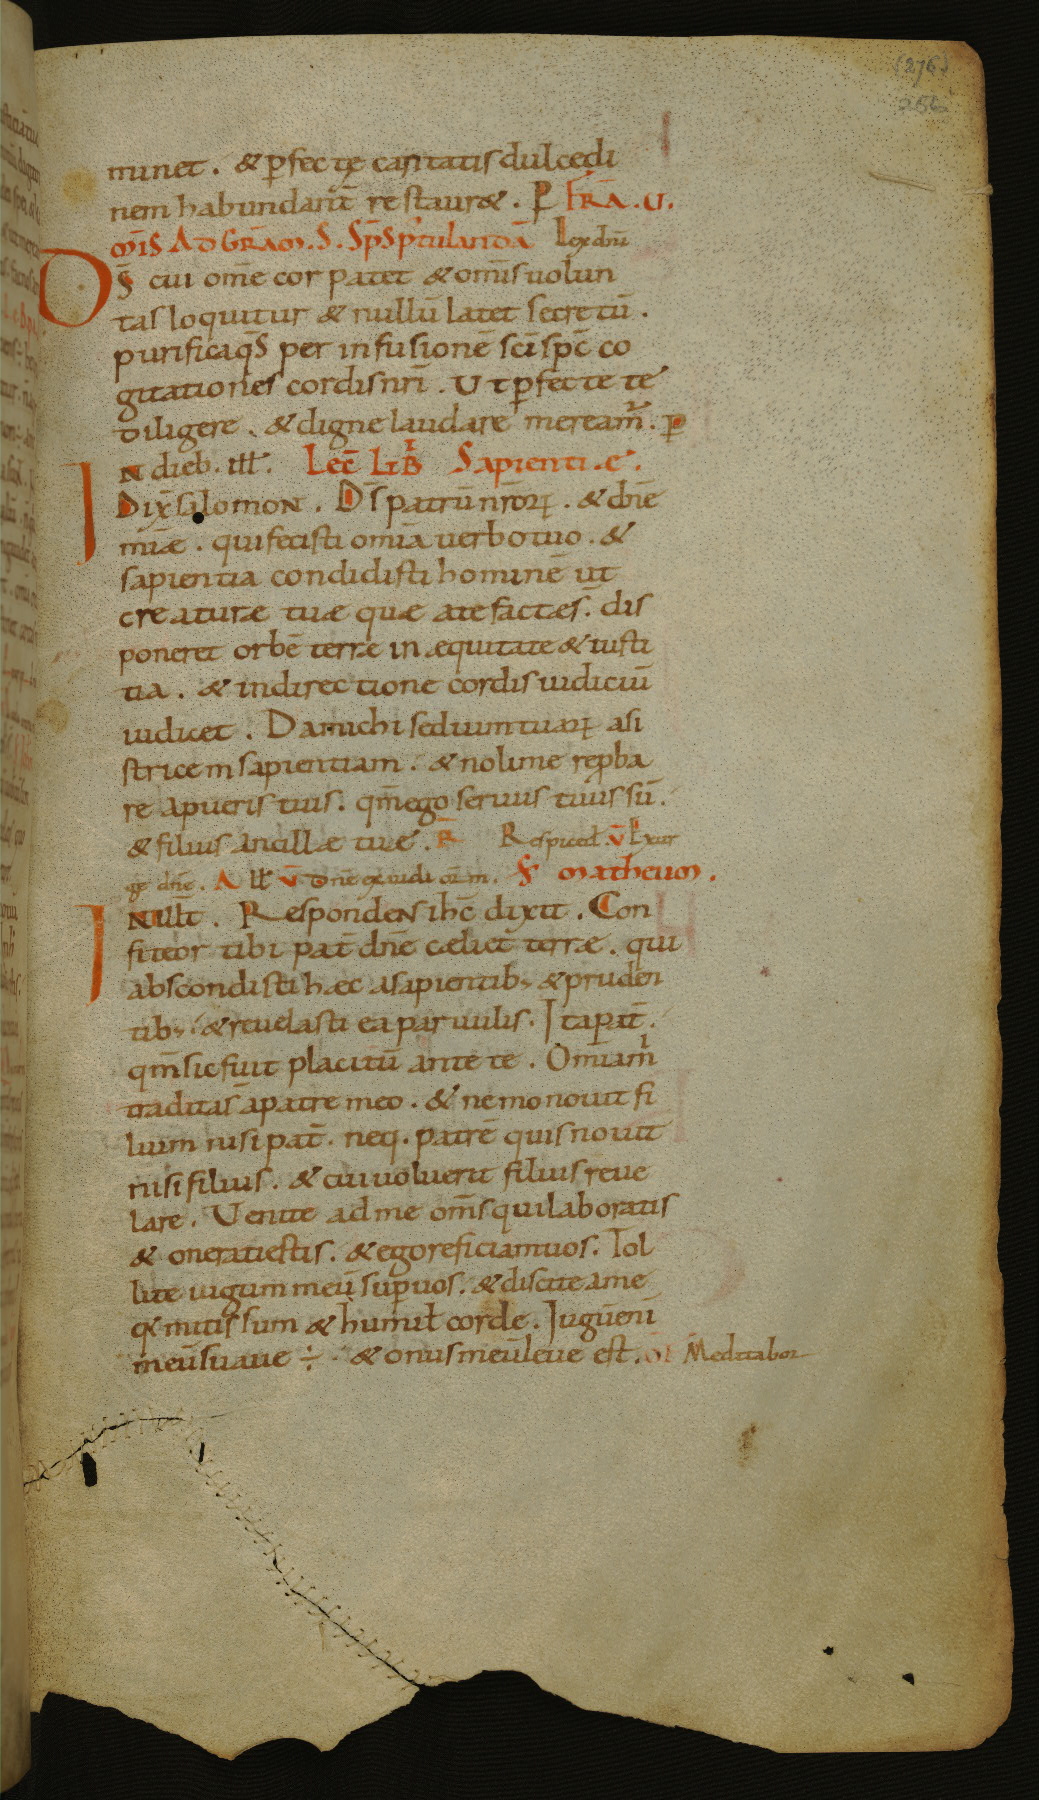 (276)
256
munet . & ꝑfectę caritatis dulcedi
nem habundant̄ restaur& . P̱ FR̄A . U .
MĪS AD GRĀM . S . SP̄S P̄tulandā Lex dnī
D̄S cui om̄e cor patet & om̄is uolun
tas loquitur & nullū latet secretū .
purificaq̄S per infusionē sc̄i sp̄c co
gitationes cordis nr̄i . Ut ꝑfecte te
diligere . & digne laudare meream̄ . ꝑ
IN dieb . ıll̄ . Lec̄ LIB̄ Sapienti . e .
Dix̄ salomoN . D̄s patrū nr̄oꝝ . & dn̄e
miæ . qui fecisti omīa uerbo tuo . &
sapientia condidisti hominē ut
creaturæ tuæ quæ ate factæs̄ . dis
poneret orbē terræ in æquitate & iusti
tia . & indirectione cordis iudiciū
iudicet . Da michi sedium tuaꝝ asi
stricem sapientiam . & nolime reꝓba
re apueris tuis . qm̄ ego seruus tuus sū .
& filius ancillæ tuę . R̄ Respiced . V̄ Exur
ge dn̄e . A ll V̄ Dn̄e exaudi or̄ m . S̄ matheum .
IN illt̄ . RespondeN ih̄c dixit . Con
fiteor tibi pat̄ dn̄e cæli et terræ . qui
abscondisti hæc asapientib; & prudēn
tib; . & reuelasti ea paruulis . Ita pat̄ .
qm̄ sic fuit placitū ante te . Omīa m
tradita s̄ apatre meo . & nemo nouit fi
lium nisi pat̄ . neq . patrē quis nouit
nisi filius . & cui uoluerit filius reue
lare . Uenite ad me om̄s qui laboratis
& onerati estis . & ego reficiam uos . Tol
lite iugum meū suꝑ uos . & discite ame
qa mitis sum & humil corde . Iugū eni
meū suaue ÷ . & onus meū leue est . Meditabor